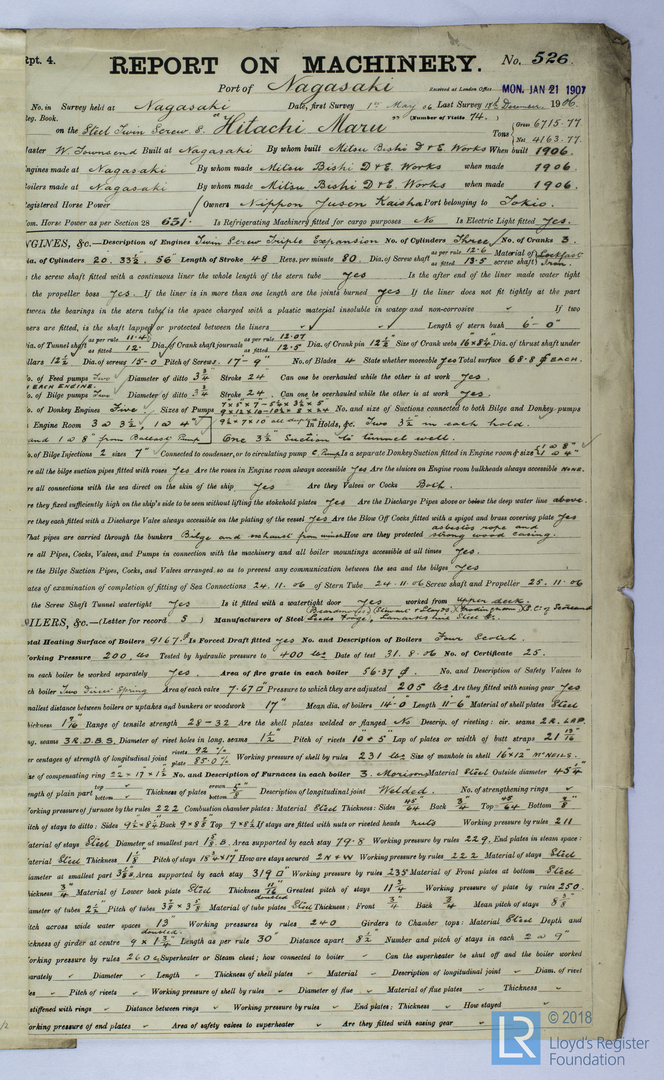 Rpt. 4.
REPORT ON MACHINERY. No. 526.
Port of Nagasaki Received at London Office MON. JAN 21 1907
No. in Survey held at Nagasaki Date, first Survey 1st May 06 Last Survey 18th December 1906.
Reg. Book. (Number of Visits 74.)
on the Steel Twin Screw S. "Hitachi Maru" Tons Gross 6715.77 Net 4163.77
Master W. Townsend Built at Nagasaki By whom built Mitsu Bishi D & E. Works When built 1906.
Engines made at Nagasaki By whom made Mitsu Bishi D & E. Works when made 1906.
Boilers made at Nagasaki By whom made Mitsu Bishi D & E. Works when made 1906.
Registered Horse Power Owners Nippon Yusen Kaisha Port belonging to Tokio.
Nom. Horse Power as per Section 28 631. Is Refrigerating Machinery fitted for cargo purposes No Is Electric Light fitted Yes.
ENGINES, &c.—Description of Engines Twin Screw Triple Expansion No. of Cylinders Three No. of Cranks 3.
Dia. of Cylinders 20. 33½. 56" Length of Stroke 48 Revs. per minute 80. Dia. of Screw shaft as per rule 12.6 as fitted 13.5 Material of screw shaft Iron.
Is the screw shaft fitted with a continuous liner the whole length of the stern tube yes Is the after end of the liner made water tight
in the propeller boss yes. If the liner is in more than one length are the joints burned yes If the liner does not fit tightly at the part
between the bearings in the stern tube, is the space charged with a plastic material insoluble in water and non-corrosive ✓ If two
liners are fitted, is the shaft lapped or protected between the liners ✓ Length of stern bush 6'-0"
Dia. of Tunnel shaft as per rule 11.4 as fitted 12" Dia. of Crank shaft journals as per rule 12.07 as fitted 12.5 Dia. of Crank pin 12½" Size of Crank webs 16 x 8¼ Dia. of thrust shaft under
collars 12½ Dia. of screw 15-0 Pitch of Screw 17-9" No. of Blades 4 State whether moveable yes Total surface 68.8 EACH.
No. of Feed pumps Two Diameter of ditto 3¾ Stroke 24 Can one be overhauled while the other is at work Yes.
EACH ENGINE.
No. of Bilge pumps Two Diameter of ditto 3¾ Stroke 24. Can one be overhauled while the other is at work Yes.
No. of Donkey Engines Five Sizes of Pumps No. and size of Suctions connected to both Bilge and Donkey pumps
In Engine Room 3 @ 3½, 1 @ 4" In Holds, &c. Two 3½" in each hold.
and 1 @ 8" from Ballast Pump One 3½" Suction to tunnel well.
No. of Bilge Injections 2 sizes 7" Connected to condenser, or to circulating pump C. Pump Is a separate Donkey Suction fitted in Engine room & size 1 @ 8" 1 @ 4"
Are all the bilge suction pipes fitted with roses Yes Are the roses in Engine room always accessible Yes Are the sluices on Engine room bulkheads always accessible NONE.
Are all connections with the sea direct on the skin of the ship Yes Are they Valves or Cocks Both.
Are they fixed sufficiently high on the ship's side to be seen without lifting the stokehold plates Yes Are the Discharge Pipes above or below the deep water line above.
Are they each fitted with a Discharge Valve always accessible on the plating of the vessel yes Are the Blow Off Cocks fitted with a spigot and brass covering plate Yes
What pipes are carried through the bunkers Bilge and exhaust from winches How are they protected asbestos rope and strong wood casing.
Are all Pipes, Cocks, Valves, and Pumps in connection with the machinery and all boiler mountings accessible at all times Yes.
Are the Bilge Suction Pipes, Cocks, and Valves arranged, so as to prevent any communication between the sea and the bilges Yes
Dates of examination of completion of fitting of Sea Connections 24.11.06 of Stern Tube 24.11.06 Screw shaft and Propeller 25.11.06
Is the Screw Shaft Tunnel watertight Yes Is it fitted with a watertight door Yes worked from upper deck.
BOILERS, &c.—(Letter for record S) Manufacturers of Steel Leeds Forge, Lanarkshire Steel Co.
Total Heating Surface of Boilers 9167 Is Forced Draft fitted yes No. and Description of Boilers Four Scotch.
Working Pressure 200 lbs Tested by hydraulic pressure to 400 lbs Date of test 31.8.06 No. of Certificate 25.
Can each boiler be worked separately Yes. Area of fire grate in each boiler 56.37 No. and Description of Safety Valves to
each boiler Two Direct Spring Area of each valve 7.67 Pressure to which they are adjusted 205 lbs Are they fitted with easing gear Yes
Smallest distance between boilers or uptakes and bunkers or woodwork 17" Mean dia. of boilers 14-0 Length 11-6" Material of shell plates Steel
Thickness 1 7/16 Range of tensile strength 28-32 Are the shell plates welded or flanged No Descrip. of riveting: cir. seams 2 R. LAP.
long. seams 3 R. D. B. S. Diameter of rivet holes in long. seams 1½" Pitch of rivets 10" + 5" Lap of plates or width of butt straps
Per centages of strength of longitudinal joint rivets 92 % plate 85.0 % Working pressure of shell by rules 231 lbs Size of manhole in shell 16" x 12" McNEILS.
Size of compensating ring 22 x 17 x 1½ No. and Description of Furnaces in each boiler 3. Morison Material Steel Outside diameter 45¼"
Length of plain part top bottom Thickness of plates crown bottom 5/8 Description of longitudinal joint Welded. No. of strengthening rings ✓
Working pressure of furnace by the rules 222 Combustion chamber plates: Material Steel Thickness: Sides 45/64 Back ¾ Top 45/64 Bottom
Pitch of stays to ditto: Sides 9½ x 8½ Back 9 x 8⅞ Top 9 x 8½ If stays are fitted with nuts or riveted heads nuts Working pressure by rules 211
Material of stays Steel Diameter at smallest part Area supported by each stay 79.8 Working pressure by rules 229. End plates in steam space:
Material Steel Thickness 1⅛ Pitch of stays 18¼ x 17" How are stays secured 2 N & W Working pressure by rules 222 Material of stays Steel
Diameter at smallest part Area supported by each stay 319 Working pressure by rules 235 Material of Front plates at bottom Steel
Thickness ¾ Material of Lower back plate Steel Thickness 11/16 doubled Greatest pitch of stays 11¾ Working pressure of plate by rules 250.
Diameter of tubes 2½" Pitch of tubes Material of tube plates Steel Thickness: Front ¾ Back ¾ Mean pitch of stays
Pitch across wide water spaces 13" doubled. Working pressures by rules 240 Girders to Chamber tops: Material Steel Depth and
thickness of girder at centre 9 x 1¾ Length as per rule 30" Distance apart 8½ Number and pitch of stays in each 2 @ 9"
Working pressure by rules 260 Superheater or Steam chest; how connected to boiler Can the superheater be shut off and the boiler worked
separately ✓ Diameter Length Thickness of shell plates Material Description of longitudinal joint Diam. of rivet
holes Pitch of rivets Working pressure of shell by rules Diameter of flue Material of flue plates Thickness
If stiffened with rings Distance between rings Working pressure by rules End plates: Thickness How stayed
Working pressure of end plates Area of safety valves to superheater Are they fitted with easing gear
© 2018
LR Lloyd's Register
Foundation